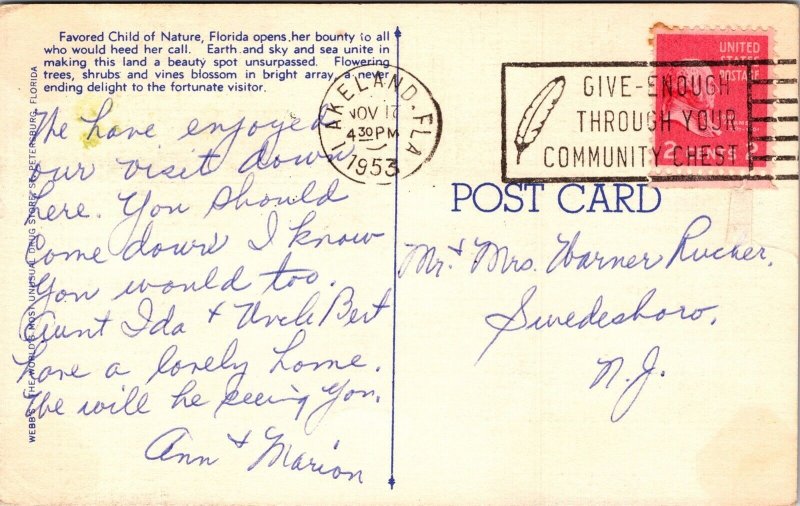 Favored Child of Nature, Florida opens her bounty to all
who would heed her call. Earth and sky and sea unite in
making this land a beauty spot unsurpassed. Flowering
trees, shrubs and vines blossom in bright array, a never
ending delight to the fortunate visitor.
WEBB'S, THE WORLD'S MOST UNUSUAL DRUG STORE, ST. PETERSBURG, FLORIDA
We have enjoyed
our visit down
here. You should
come down I know
you would too.
Aunt Ida & Uncle Bert
have a lovely home.
We will be seeing you.
Ann & Marion
LAKELAND, FLA
NOV
4 30 PM
1953
GIVE-ENOUGH
THROUGH YOUR
COMMUNITY CHEST
UNITED
STATES
POSTAGE
2 CENTS 2
POST CARD
Mr. & Mrs. Warner Rucher.
Swedesboro,
N.J.